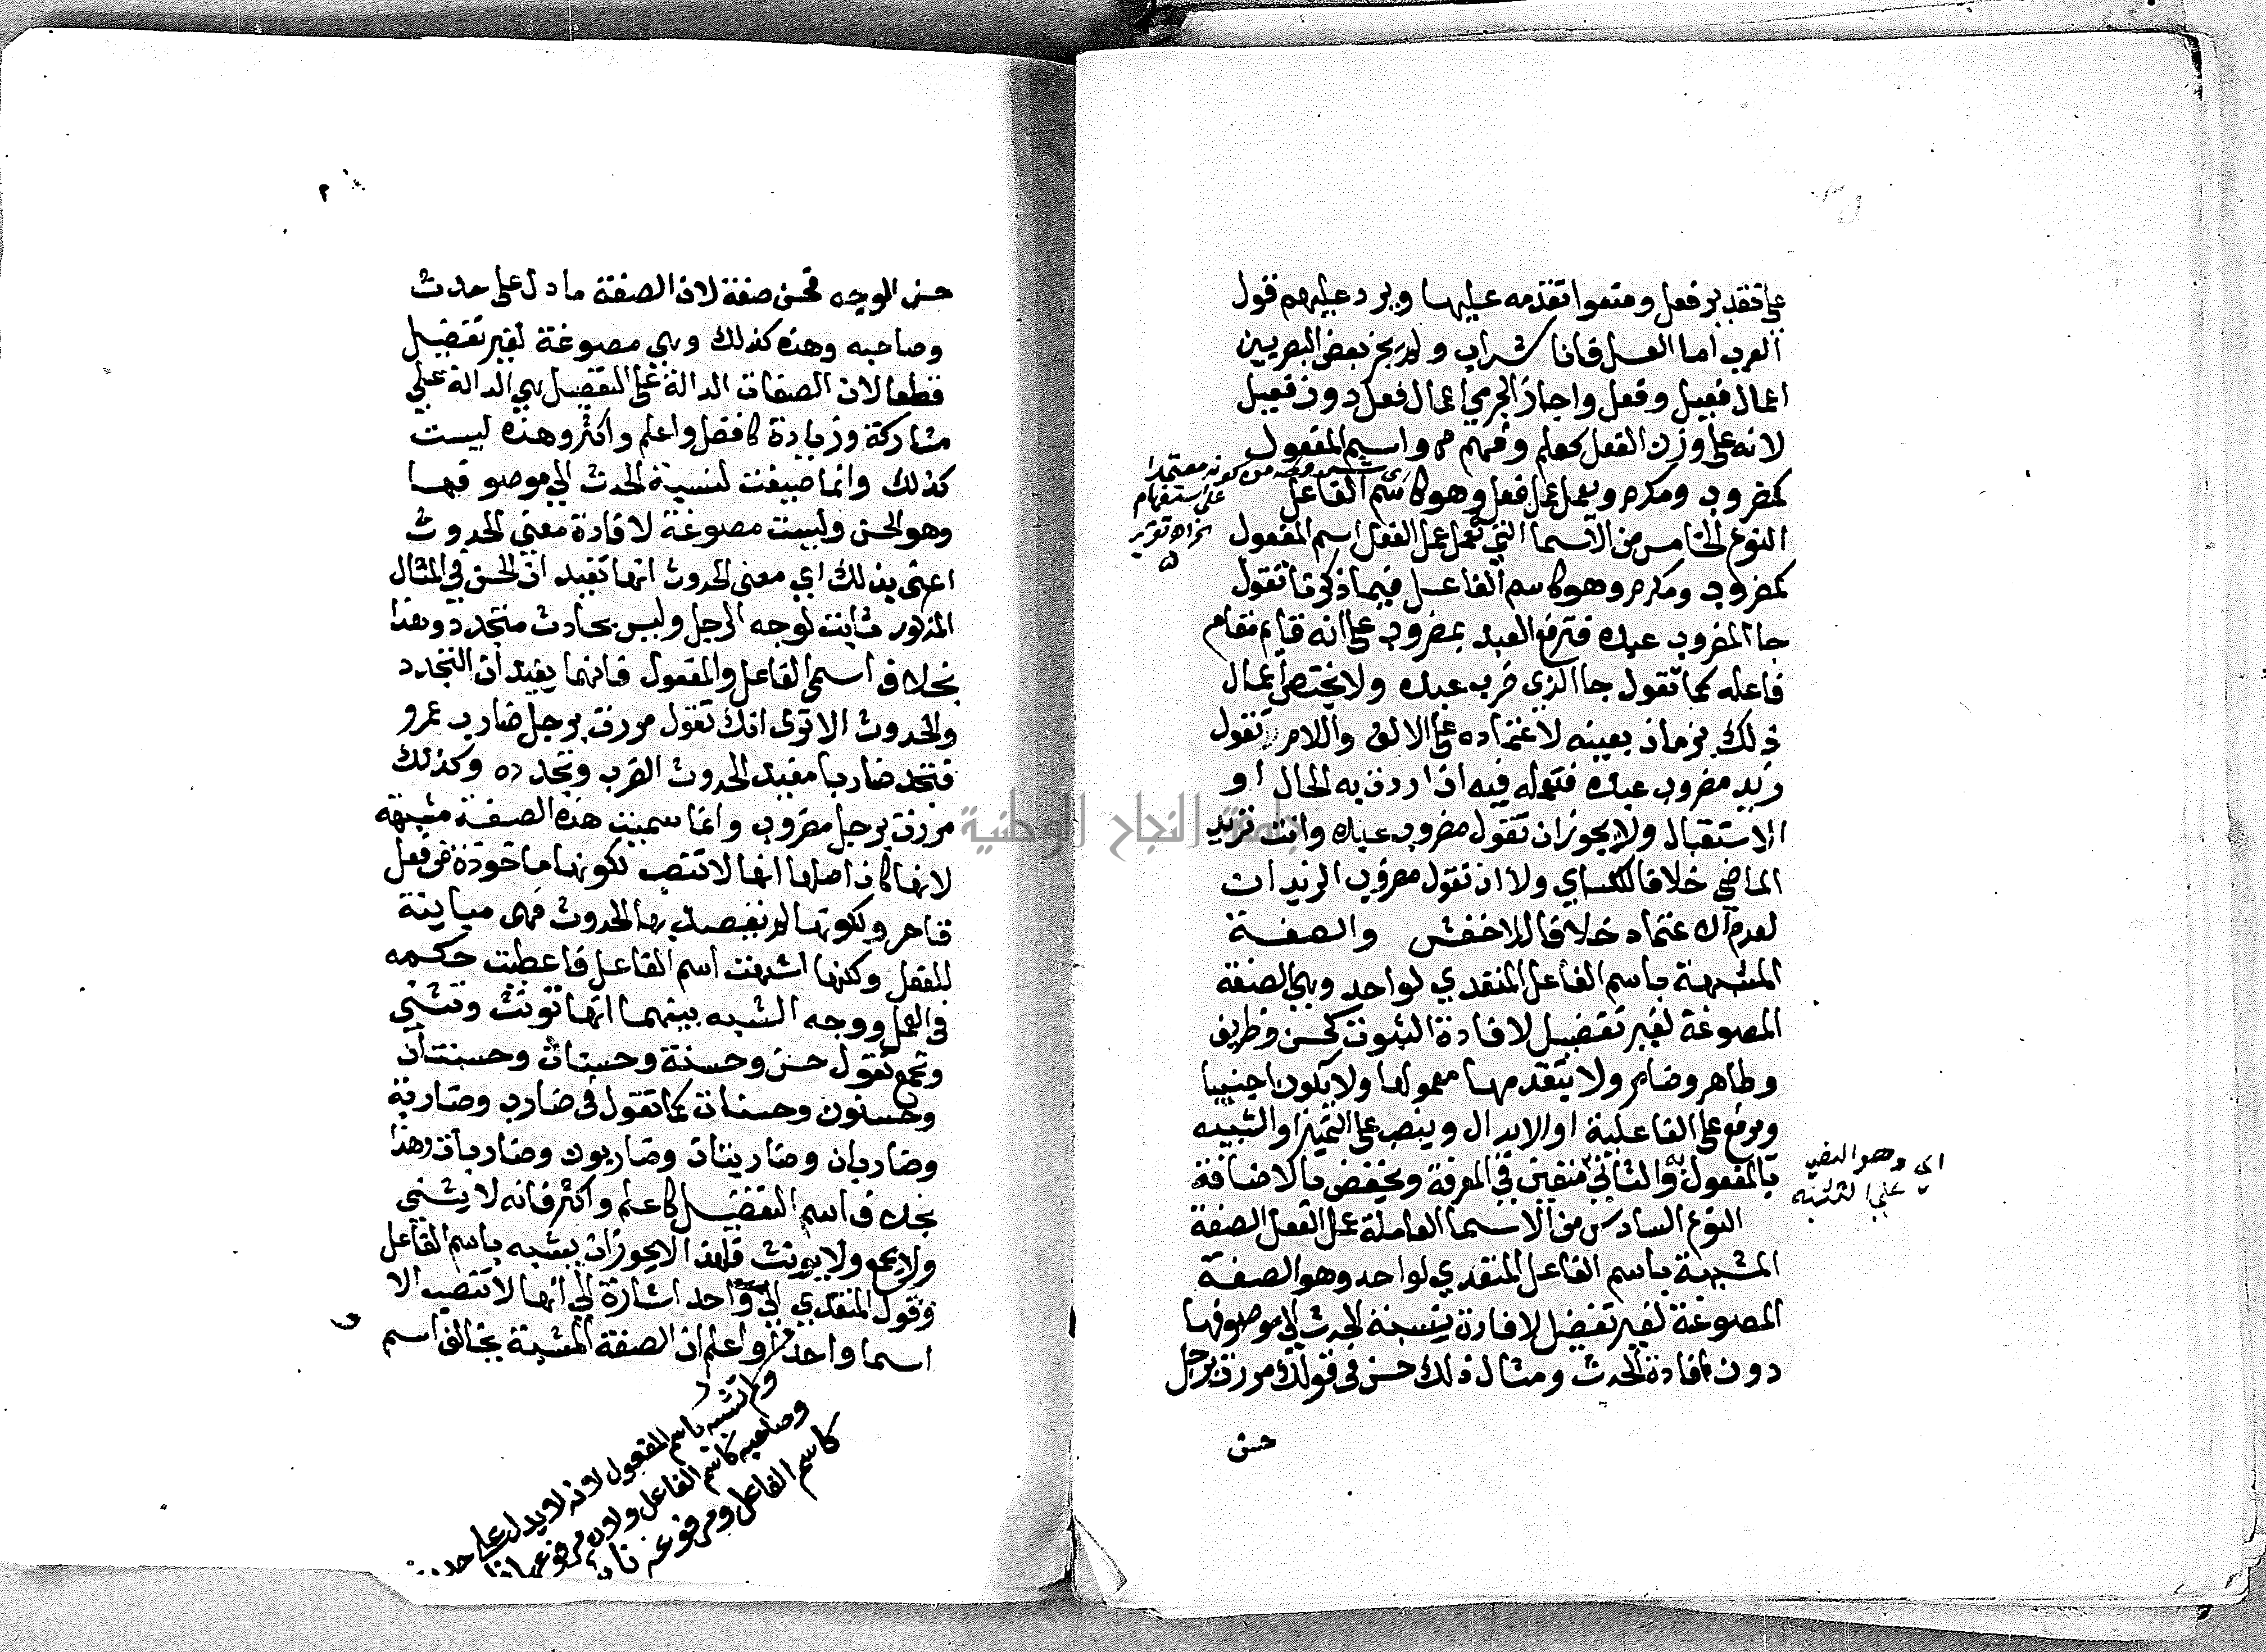 على تقدير فعل ومنعوا تقدمه عليها ويرد عليهم قول
العرب اما العسل فانا شراب ولم يجز بعض البصريين
اعمال فعيل وفعل واجاز الجرمي اعمال فعل دون فعيل
لانه على وزن الفعل كعلم وفهم ص واسم المفعول
كمضروب ومكرم ويعمل عمل فعله وهو كاسم الفاعل
النوع الخامس من الاسما التي تعمل عمل الفعل اسم المفعول
كمضروب ومكرم وهو كاسم الفاعل فيما ذكرنا تقول
جا المضروب عبده فترفع العبد بمضروب على انه قايم مقام
فاعله كما تقول جا الذي ضرب عبده ولا يختص اعمال
ذلك بزمان بعينه لاعتماده على الالف واللام وتقول
زيد مضروب عبده فتعمله فيه اذا اردت به الحال او
الاستقبال ولا يجوز ان تقول مضروب عبده وانت تريد
الماضي خلافا للكساي ولا ان تقول مضروب الزيدان
لعدم الاعتماد خلافا للاخفش والصفة
المشبهة باسم الفاعل المتعدي لواحد وهي الصفة
المصوغة لغير تفضيل لافادة الثبوت كحسن وظريف
وطاهر وضامر ولا يتقدمها معمولها ولا يكون اجنبيا
ويرفع على الفاعلية او الابدال وينصب على التمييز او التشبيه
بالمفعول به والثاني متعين في المعرفة ويخفض بالاضافة
النوع السادس من الاسما العاملة عمل الفعل الصفة
المشبهة باسم الفاعل المتعدي لواحد وهو الصفة
المصوغة لغير تفضيل لافادة نسبة الحدث الى موصوفها
دون افادة الحدث ومثال ذلك حسن في قولك مررت برجل
حسن
من كونه معتمدا
على استفهام
اي وهو النصب
على التشبيه
حسن الوجه فحسن صفة لان الصفة ما دل على حدث
وصاحبه وهذه كذلك وهي مصوغة لغير تفضيل
قطعا لان الصفات الدالة على التفضيل هي الدالة على
مشاركة وزيادة كافضل واعلم واكثر وهذه ليست
كذلك وانما صيغت لنسبة الحدث الى موصوفها
وهو الحسن وليست مصوغة لافادة معنى الحدوث
اعني بذلك اي معنى الحدوث انها تفيد ان الحسن في المثال
المذكور ثابت لوجه الرجل وليس بحادث متجدد وهذا
بخلاف اسمي الفاعل والمفعول فانهما يفيدان التجدد
والحدوث الا ترى انك تقول مررت برجل ضارب عمرو
فتجد ضاربا مفيد الحدوث الضرب وتجدده وكذلك
مررت برجل مضروب وانما سميت هذه الصفة مشبهة
لانها كان اصلها انها لا تنصب لكونها ماخوذة من فعل
قاصر ولكونها لم يقصد بها الحدوث فهي مباينة
للفعل ولكنها اشبهت اسم الفاعل فاعطيت حكمه
في العمل ووجه الشبه بينهما انها تونث وتثنى
وتجمع تقول حسن وحسنة وحسنان وحسنتان
وحسنون وحسنات كما تقول في ضارب وضاربة
وضاربان وضاربتان وضاربون وضاربات وهذا
بخلاف اسم التفضيل كاعلم واكثر فانه لا يثنى
ولا يجمع ولا يونث فلهذا لا يجوز ان يشبه باسم الفاعل
وقول المتعدي الى واحد اشارة الى انها لا تنصب الا
اسما واحدا واعلم ان الصفة المشبهة تخالف اسم
ولم تشبه باسم المفعول لانه لا يدل على حدث
وصاحبه كاسم الفاعل ولان مرفوعها
كاسم الفاعل ومرفوعه
جامعة النجاح الوطنية